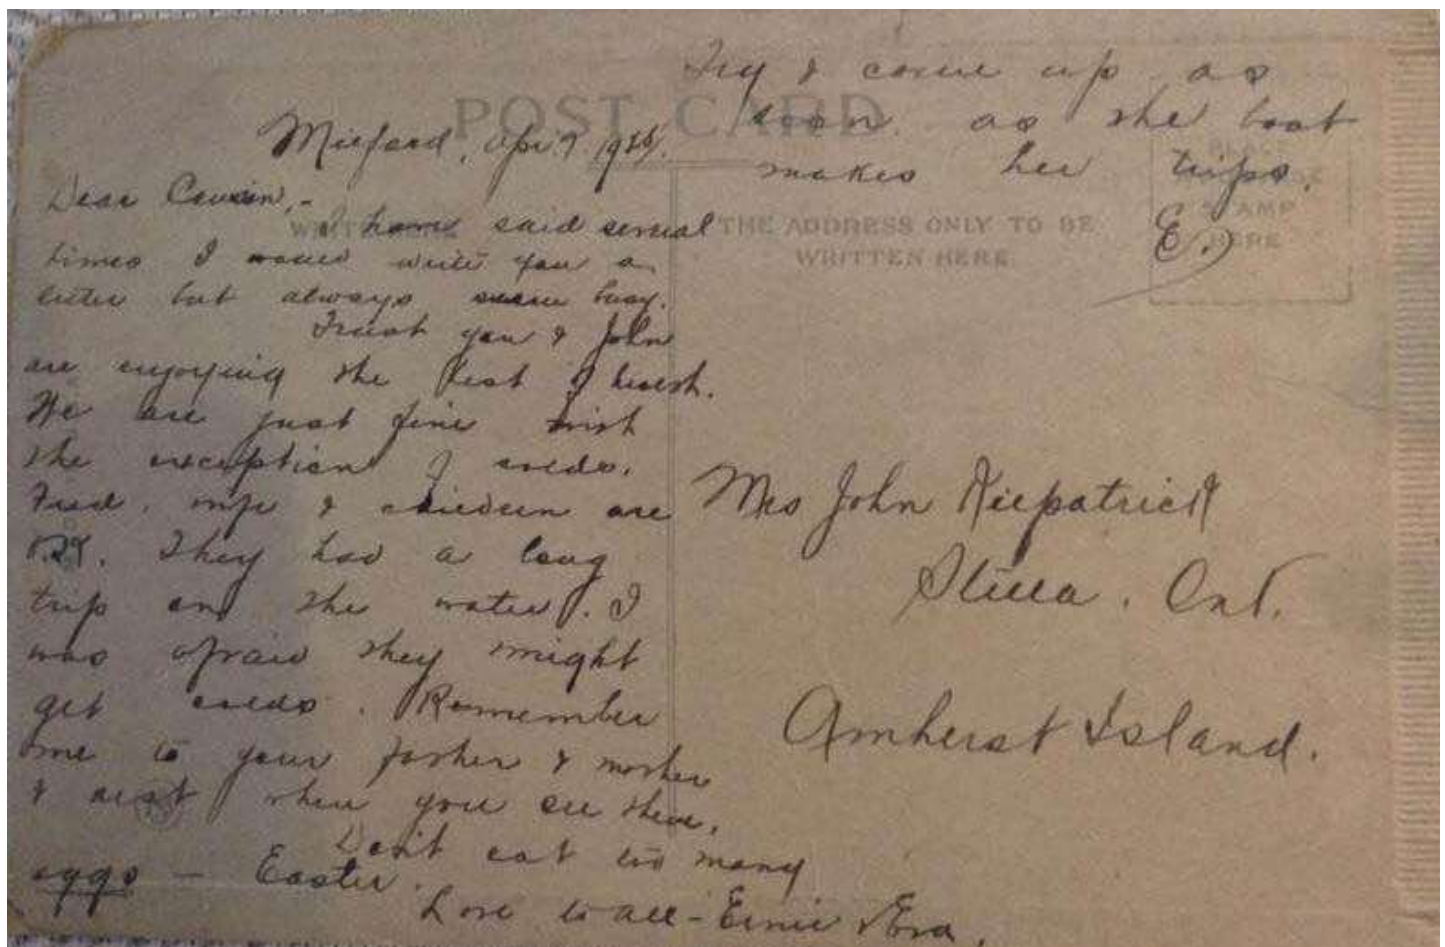 Try & come up as
soon as the boat
makes her trips.
E.
POST CARD
Milford, Apr. 7 19
Dear Cousin,-
I have said several
times I would write you a
letter but always seem busy.
Trust you & John
are enjoying the best of health.
We are just fine with
the exception of colds.
Fred, wife & children are
O.K. They had a long
trip on the water. I
was afraid they might
get colds. Remember
me to your father & mother
& rest when you see them.
Don't eat too many
eggs - Easter.
Love to all - Ernie & Eva.
THE ADDRESS ONLY TO BE
WRITTEN HERE
PLACE
STAMP
HERE
Mrs John Kilpatrick
Stella, Ont.
Amherst Island.